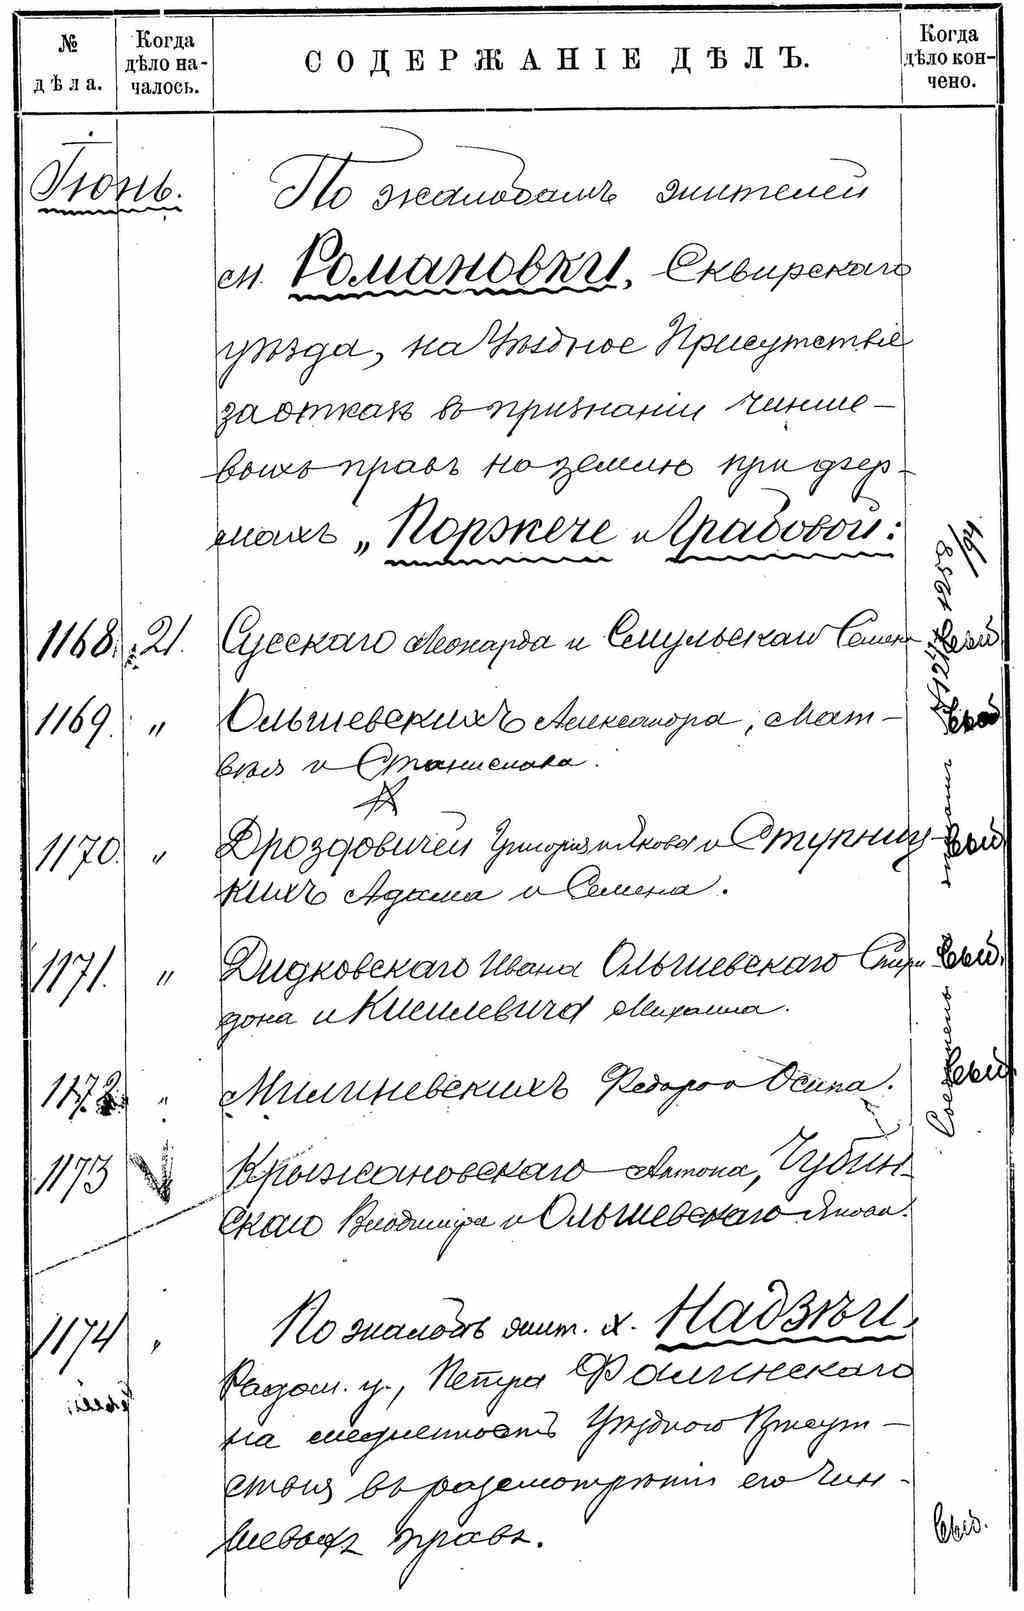 № дѣла.
Когда дѣло началось.
СОДЕРЖАНІЕ ДѢЛЪ.
Когда дѣло кончено.
Іюнь.
По жалобамъ жителей
м. Романовки, Сквирскаго
уѣзда, на Уѣздное Присутствіе
за отказъ въ признаніи чинше-
выхъ правъ на землю при фер-
махъ „Поржече и Арабовой:
1168. 21. Сусскаго Леонарда и Смульскаго Семена
1169. „ Ольшевскихъ Александра, Мат-
вѣя и Станислава.
1170. „ Дроздовичей Григорія и Якова и Ступниц-
кихъ Адама и Семена.
1171. „ Дидковскаго Ивана Ольшевскаго Спири-
дона и Кисилевича Михаила.
1172 „ Милиневскихъ Федора и Осипа.
1173 Крыжановскаго Антона, Чубин-
скаго Владиміра и Ольшевскаго Якова.
1174 „ По жалобѣ жит. х. Надзѣи,
Радом. у., Петра Фалинскаго
на медленность Уѣзднаго Присут-
ствія въ разсмотрѣніи его чин-
шевыхъ правъ.